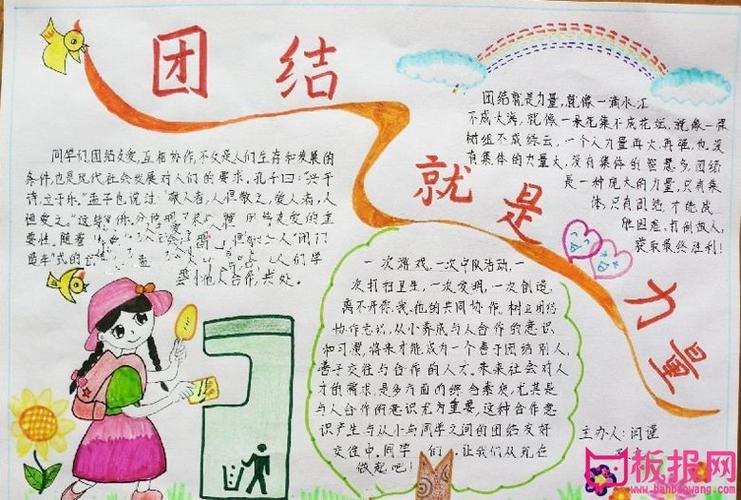 团结
就是
力量
同学们,团结友爱,互相协作,不仅是人们生存和发展的
条件,也是现代社会发展对人们的要求。孔子曰:"兴于
诗,立于乐。"孟子也说过:"敬人者,人恒敬之,爱人者,人
恒爱之。"这些
爱的重
要性。随着
人"闭门
人们学
会与他人合作,共处。
团结就是力量,就像一滴水汇
不成大海,就像一朵花集不成花坛,就像一棵
树组不成绿云,一个人力量再大,再强,也没
有集体的力量大,没有集体的智慧多。团结
是一种庞大的力量,只有集
体,只有团结,才能战
胜困难,打倒敌人,
获取最终胜利!
一次游戏,一次中队活动,一
次打扫卫生,一次发明,一次创造,
离不开你、我、他的共同协作。树立团结
协作意识,从小养成与人合作的意识
和习惯,将来才能成为一个善于团结别人,
善于交往与合作的人才。未来社会对人
才的需求,是多方面的综合素质,尤其是
与人合作的意识尤为重要,这种合作意
识产生与从小与同学之间的团结友好
交往中,同学们,让我们从现在
做起吧!
主办人:闫谨
板报网
www.banbaowang.com